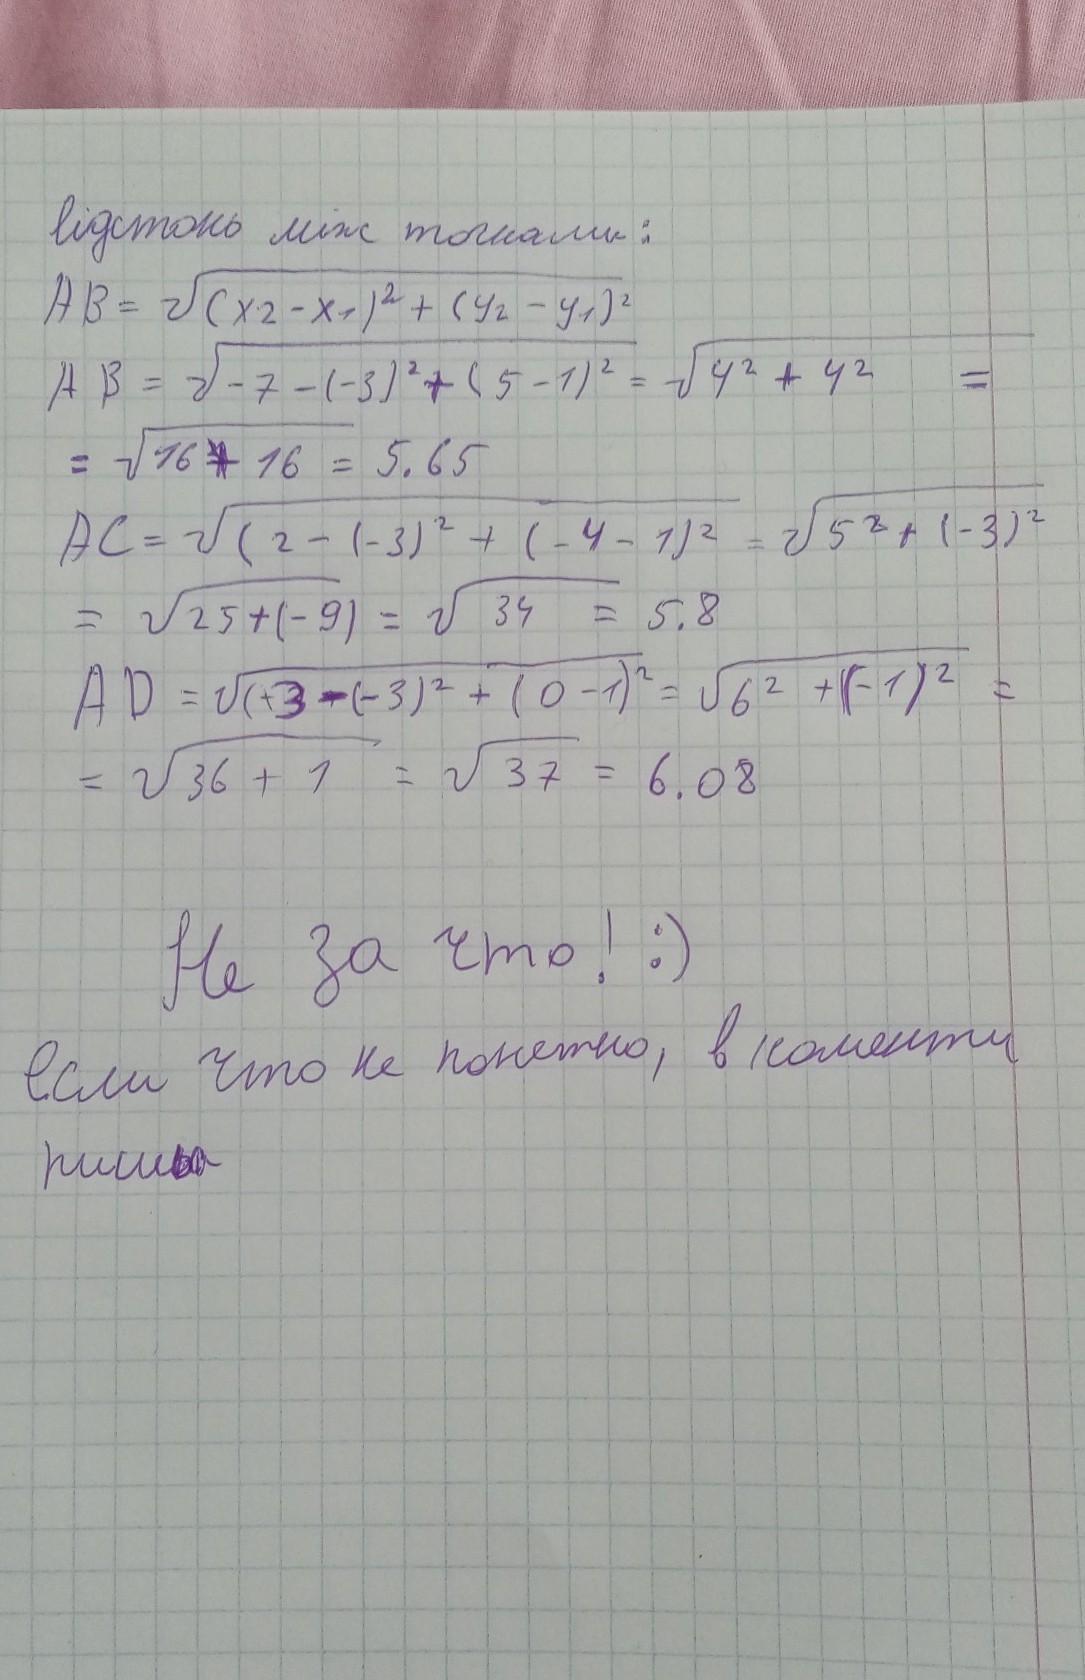 відстонь між точками:
AB = √(x2 - x1)² + (y2 - y1)²
AB = √-7 - (-3)² + (5 - 1)² = √4² + 4² =
= √16 + 16 = 5.65
AC = √(2 - (-3)² + (-4 - 1)² = √5² + (-3)²
= √25 + (-9) = √34 = 5.8
AD = √(+3 - (-3)² + (0 - 1)² = √6² + (-1)² =
= √36 + 1 = √37 = 6.08
Не за что! :)
Если что не понетно, в коменти